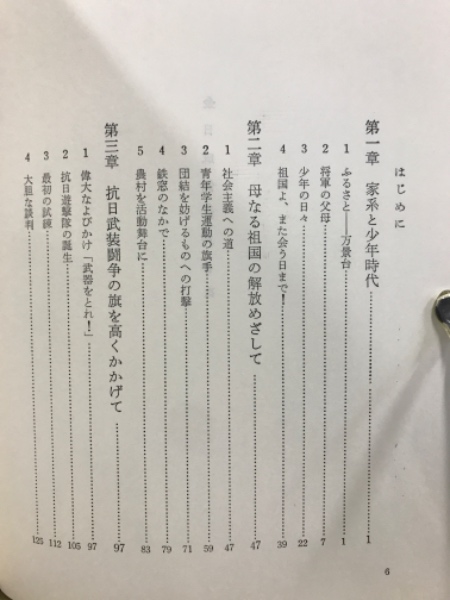 はじめに
第一章 家系と少年時代…………1
1 ふるさと――万景台…………1
2 将軍の父母…………7
3 少年の日々…………22
4 祖国よ、また会う日まで!…………39
第二章 母なる祖国の解放めざして…………47
1 社会主義への道…………47
2 青年学生運動の旗手…………59
3 団結を妨げるものへの打撃…………71
4 鉄窓のなかで…………79
5 農村を活動舞台に…………83
第三章 抗日武装闘争の旗を高くかかげて…………97
1 偉大なよびかけ「武器をとれ!」…………97
2 抗日遊撃隊の誕生…………105
3 最初の試練…………112
4 大胆な談判…………125
6